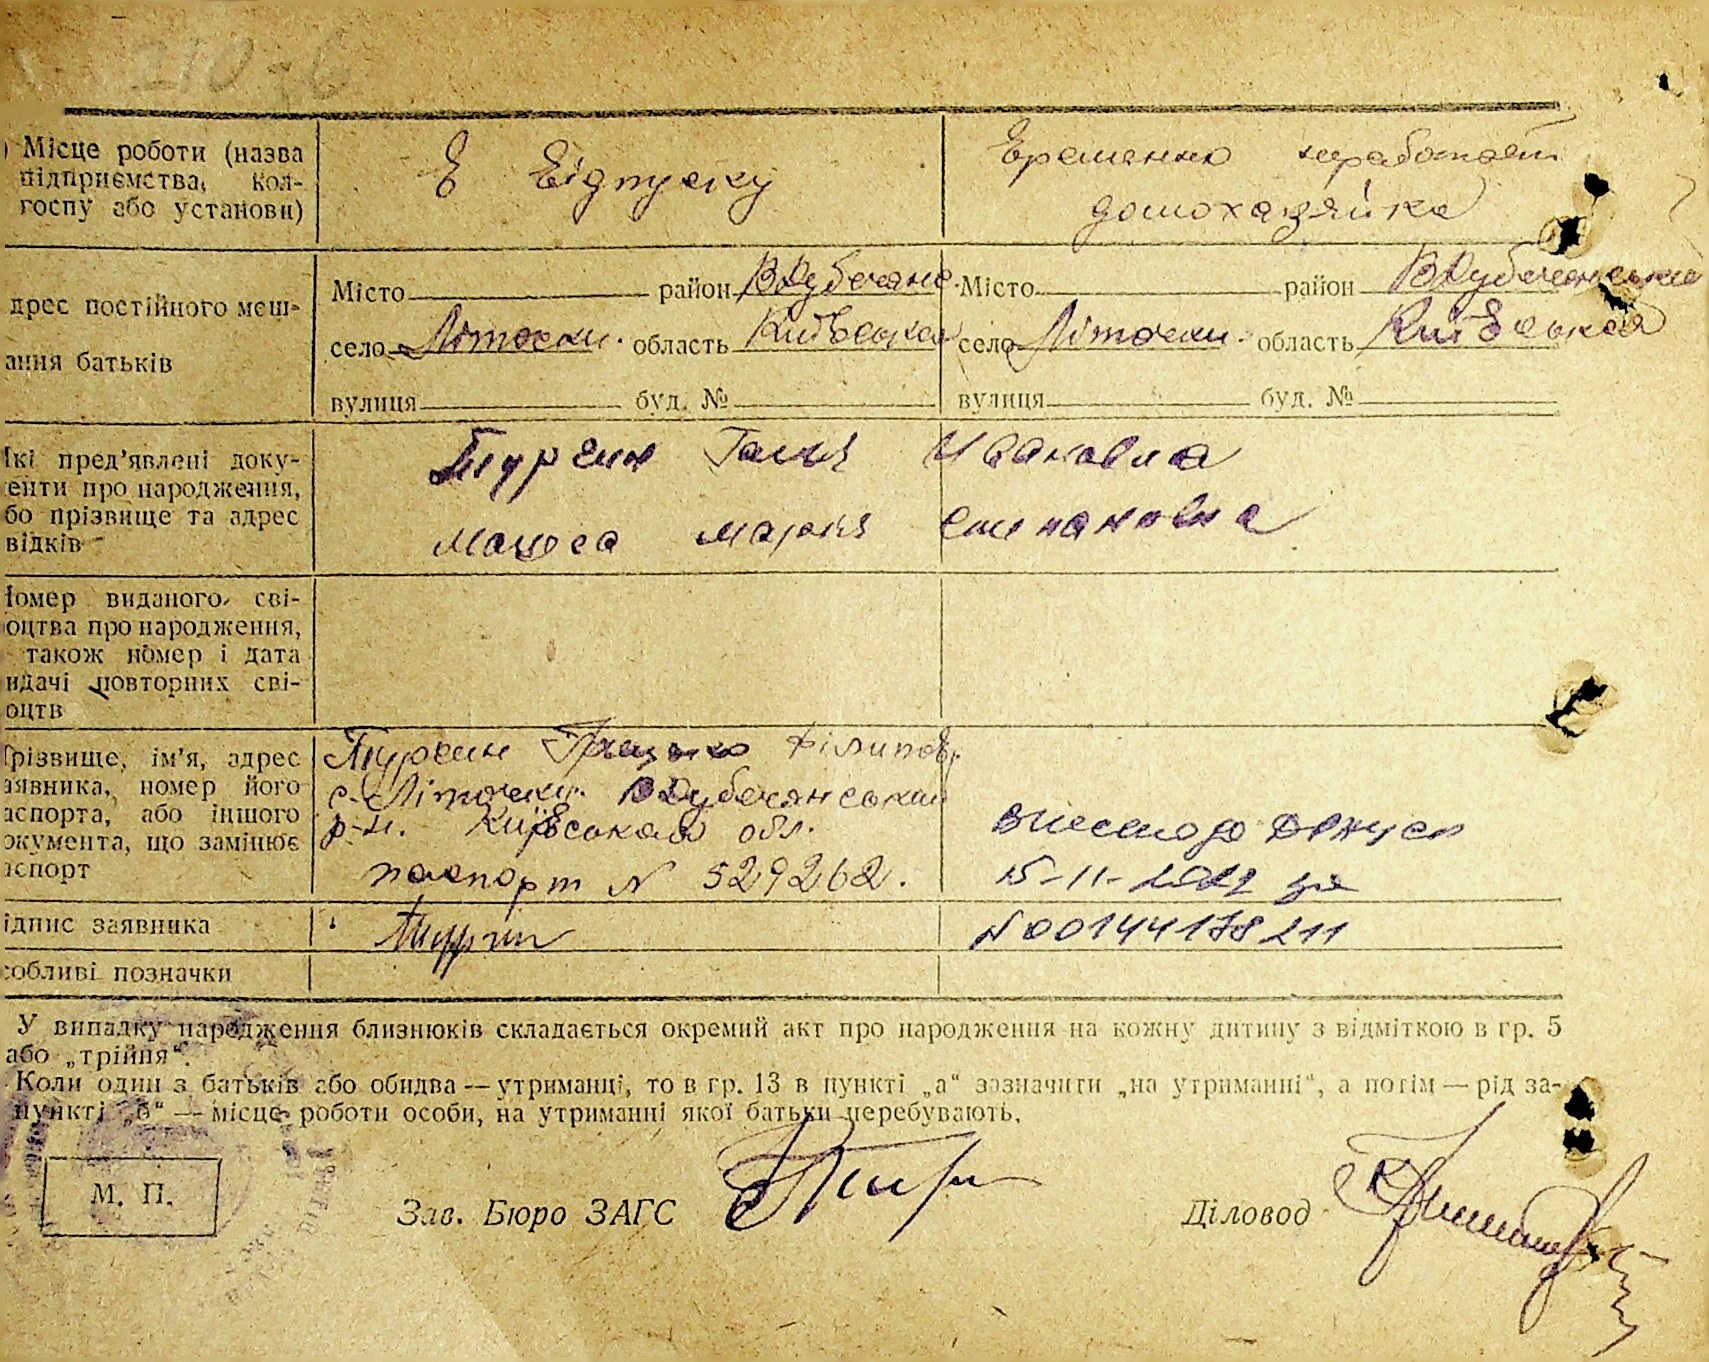 210-б
) Місце роботи (назва
підприємства, кол-
госпу або установи)
В відпуску
Временно неработает
домохазяйка
дрес постійного меш-
ання батьків
Місто район ВДубечанс. Місто район ВДубечанський
село Літочки. область Київська село Літочки. область Київська
вулиця буд. № вулиця буд. №
Які пред’явлені доку-
енти про народження,
бо прізвище та адрес
відків
Галя Ивановна
Мария
Номер виданого сві-
оцтва про народження,
також номер і дата
идачі повторних сві-
оцтв
Прізвище, ім’я, адрес
аявника, номер його
аспорта, або іншого
окумента, що замінює
аспорт
Филипов.
с. Літочки. ВДубечанський
р-н. Київської обл.
паспорт № 529262.
внесено до ДРАЦСГ
15-11-2022 за
№00144178211
ідпис заявника
собливі позначки
У випадку народження близнюків складається окремий акт про народження на кожну дитину з відміткою в гр. 5
або „трійня“.
Коли один з батьків або обидва — утриманці, то в гр. 13 в пункті „а“ зазначити „на утриманні“, а потім — рід за-
пункті „б“ — місце роботи особи, на утриманні якої батьки перебувають.
М. П.
Зав. Бюро ЗАГС
Діловод